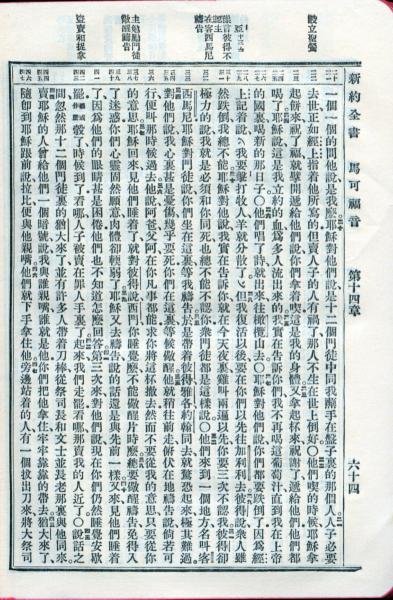 新約全書 馬可福音 第十四章 六十四
設立聖餐
豫言彼得不認主
在客西馬尼禱告
主勉勵門徒儆醒禱告
賣和捉拿
一個一個的問他說是我麼耶穌對他們說是十二個門徒中同我蘸手在盤子裏的那個人人子必要
去世正如經上指着他所寫的但賣人子的人有禍了那人不生在世上倒好○他們喫的時候耶穌拿
起餅來祝了福就擘開遞給他們說你們拿着喫這是我的身體又拿起杯來祝謝了遞給他們他們都
喝了耶穌說這是我立約的血爲多人流出來的我實在告訴你們我不再喝這葡萄汁直到我在上帝
的國裏喝新的那日子○他們唱了詩就出來往橄欖山去○耶穌對他們說你們都要跌倒了因爲經
上記着說我要擊打牧人羊就分散了但我復活以後要在你們以先往加利利去彼得說衆人雖
然跌倒我總不能耶穌對他說我實在告訴你就在今天夜裏雞叫兩遍以先你要三次不認我彼得卻
極力的說我就是必須和你同死也總不能不認你衆門徒都是這樣說○他們來到一個地方名叫客
西馬尼耶穌對門徒說你們坐在這裏等我禱告於是帶着彼得雅各約翰同去就驚恐起來極其難過
對他們說我心裏甚是憂傷幾乎要死你們在這裏等候儆醒他就稍往前走俯伏在地禱告說倘若可
行便叫那時候過去他說阿爸父阿在你凡事都能求你將這杯撤去然而不要從我的意思只要從你
的意思耶穌回來見他們睡着了就對彼得說西門你睡覺麼不能儆醒片時麼總要儆醒禱告免得入
了迷惑你們心靈固然願意肉體卻輭弱了耶穌又去禱告說的話還是與先前一樣又來見他們睡着
了因爲他們的眼睛甚是困倦他們也不知道怎麼回答第三次來對他們說現在你們仍然睡覺安歇
罷彀了時候到了看哪人子被賣在罪人手裏了起來我們走罷看哪那賣我的人近了○說話之
間忽然那十二個門徒裏的猶大來了並有許多人帶着刀棒從祭司長和文士並長老那裏與他同來
賣耶穌的人曾給他們一個暗號說我與誰親嘴誰就是他你們把他拿住牢牢靠靠的帶去猶大來了
隨即到耶穌跟前說拉比便與他親嘴他們就下手拿住他旁邊站着的人有一個拔出刀來將大祭司